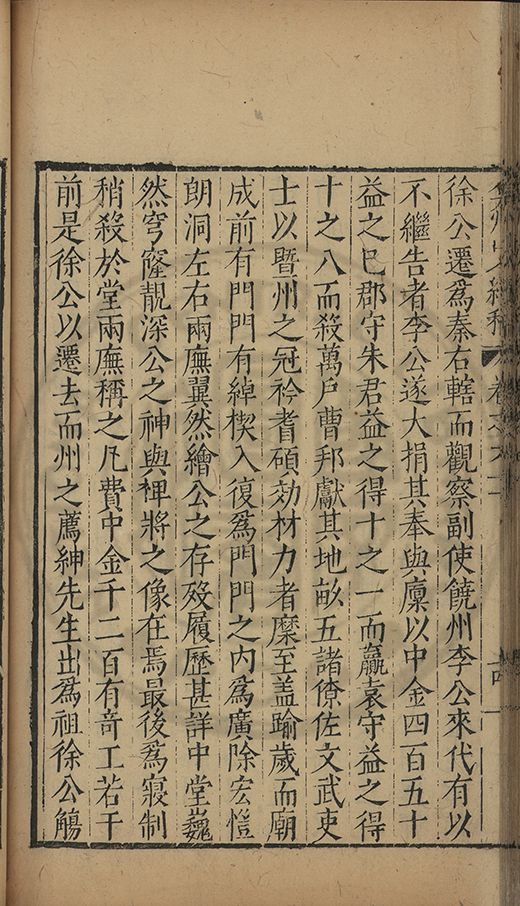 徐公遷爲秦右轄而觀察副使饒州李公來代有以
不繼告者李公遂大捐其奉與廩以中金四百五十
益之巳郡守朱君益之得十之一而羸袁守益之得
十之八而殺萬戶曹邦獻其地畝五諸僚佐文武吏
士以暨州之冠衿耆碩効材力者麇至盖踰歲而廟
成前有門門有綽楔入復爲門門之內爲廣除宏愷
朗洞左右兩廡翼然繪公之存歿履歷甚詳中堂巍
然穹窿靚深公之神與裨將之像在焉最後爲寢制
稍殺於堂兩廡稱之凡費中金千二百有奇工若干
前是徐公以遷去而州之薦紳先生出爲祖徐公觴